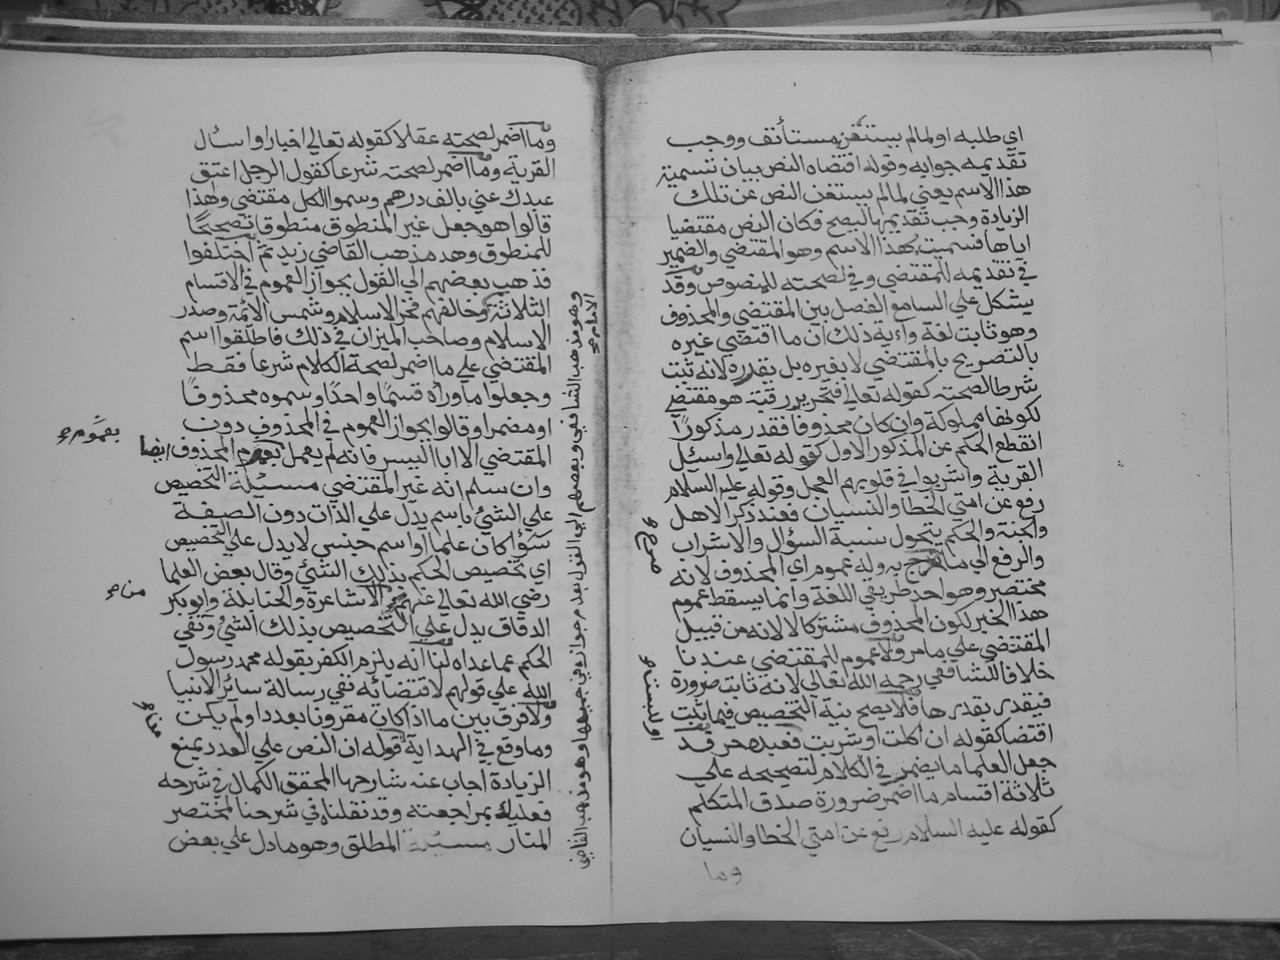 اي طلبه او لما لم يستغن مستأنف ووجب
تقديمه جوابه وقوله اقتضاه النص بيان تسمية
هذا الاسم يعني لما لم يستغن النص عن تلك
الزيادة وجب تقديمها ليصح فكان النص مقتضيا
اياها فسميت بهذا الاسم وهو المقتضي والضمير
في تقديمه للمقتضي وفي لصحته للمنصوص وقد
يشكل علي السامع الفصل بين المقتضي والمحذوف
وهو ثابت لغة واية ذلك ان ما اقتضي غيره
بالتصريح بالمقتضي لا بغيره بل يقدره لانه ثبت
شرطا لصحته كقوله تعالي فتحرير رقبة هو مقتضي
لكونها مملوكة وان كان محذوفا فقدر مذكورا
انقطع الحكم عن المذكور الاول كقوله تعالي واسئل
القرية واشربوا في قلوبهم العجل وقوله عليه السلام
رفع عن امتي الخطا والنسيان فعند ذكر الاهل
والحكم يتحول نسبة السؤال والاشراب
والرفع الي ما صرح به وله عموم اي المحذوف لانه
مختصر وهو احد طريقي اللغة وانما يسقط عموم
هذا الخبر لكون المحذوف مشتركا لا لانه من قبيل
المقتضي علي ما مر ولا عموم للمقتضي عندنا
خلافا للشافعي رحمه الله تعالي لانه ثابت ضرورة
فيقدر بقدرها فلا يصح نية التخصيص فيما ثبت
اقتضا كقوله ان اكلت او شربت فعبده حر قد
جعل العلما ما يضمر في الكلام لتصحيحه علي
ثلاثة اقسام ما اضمر ضرورة صدق المتكلم
كقوله عليه السلام رفع عن امتي الخطا والنسيان
وما
صرح
وما اضمر لصحته عقلا كقوله تعالي اخبارا واسأل
القرية وما اضمر لصحته شرعا كقول الرجل اعتق
عبدك عني بالف درهم وسموا الكل مقتضي ولهذا
قالوا هو جعل غير المنطوق منطوقا تصحيحا
للمنطوق وهذ مذهب القاضي زيد ثم اختلفوا
فذهب بعضهم الي القول بجواز العموم في الاقسام
الثلاثة وخالفهم فخر الاسلام وشمس الائمة وصدر
الاسلام وصاحب الميزان في ذلك فاطلقوا اسم
المقتضي علي ما اضمر لصحة الكلام شرعا فقط
وجعلوا ما وراه قسما واحدا وسموه محذوفا
او مضمرا وقالوا بجواز العموم في المحذوف دون
المقتضي الا ابا اليسر فانه لم يعمل بعموم المحذوف ايضا
وان سلم انه غير المقتضي مسئلة التخصيص
علي الشيئ باسم يدل علي الذات دون الصفة
سوا كان علما او اسم جنسي لا يدل علي التخصيص
اي تخصيص الحكم بذلك الشيئ وقال بعض العلما
رضي الله تعالي عنهم الاشاعرة والحنابلة وابو بكر
الدقاق يدل علي التخصيص بذلك الشيئ ونفي
الحكم عما عداه لنا انه يلزم الكفر بقوله محمد رسول
الله علي قولهم لاقتضائه نفي رسالة سائر الانبيا
ولا فرق بين ما اذا كان مقرونا بعدد او لم يكن
وما وقع في الهداية قوله ان النص علي العدد يمنع
الزيادة اجاب عنه شارحها المحقق الكمال في شرحه
فعليك بمراجعته وقد نقلناه في شرحنا المختصر
المنار مسئلة المطلق وهو ما دل علي بعض
بعموم
وهو مذهب الشافعي وبعضهم الي القول بعدم جوازه في جميعها وهو مذهب القاضي
الامام